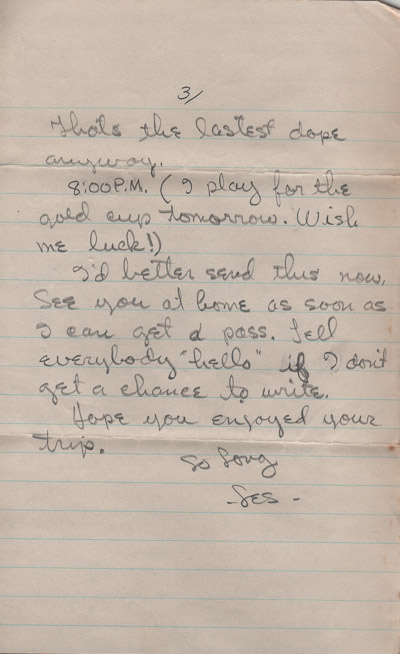 3/
Thats the lastest dope
anyway.
8:00 P.M. ( I play for the
gold cup tomorrow. Wish
me luck!)
I'd better send this now.
See you at home as soon as
I can get a pass. Tell
everybody "hello" if I don't
get a chance to write.
Hope you enjoyed your
trip.
So Long
-Les -